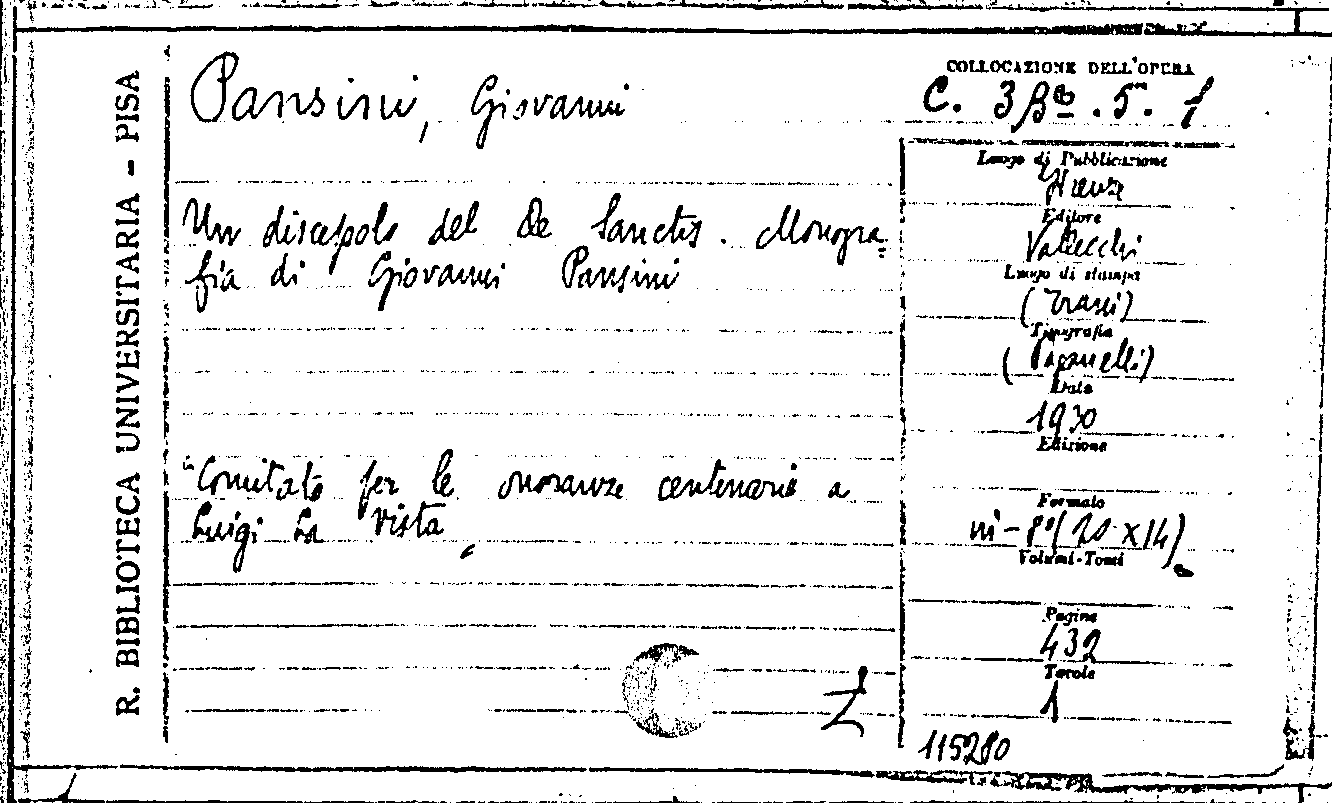 R. BIBLIOTECA UNIVERSITARIA - PISA
Pansini, Giovanni
Un discepolo del De Sanctis. Monogra=
fia di Giovanni Pansini
"Comitato per le onoranze centenarie a
Luigi La Vista"
COLLOCAZIONE DELL'OPERA
C. 3 5. 1
Luogo di Pubblicazione
Firenze
Editore
Vallecchi
Luogo di stampa
(Trani)
Tipografia
(Paganelli)
Data
1930
Edizione
Formato
in-8°(20x14)
Volumi-Tomi
Pagine
432
Tavole
1
115280